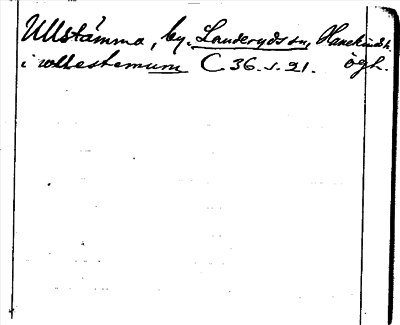 Ullstämma, by. Landeryds sn, Hanekinds h.
i wllestemum C 36. s. 21. ögl.